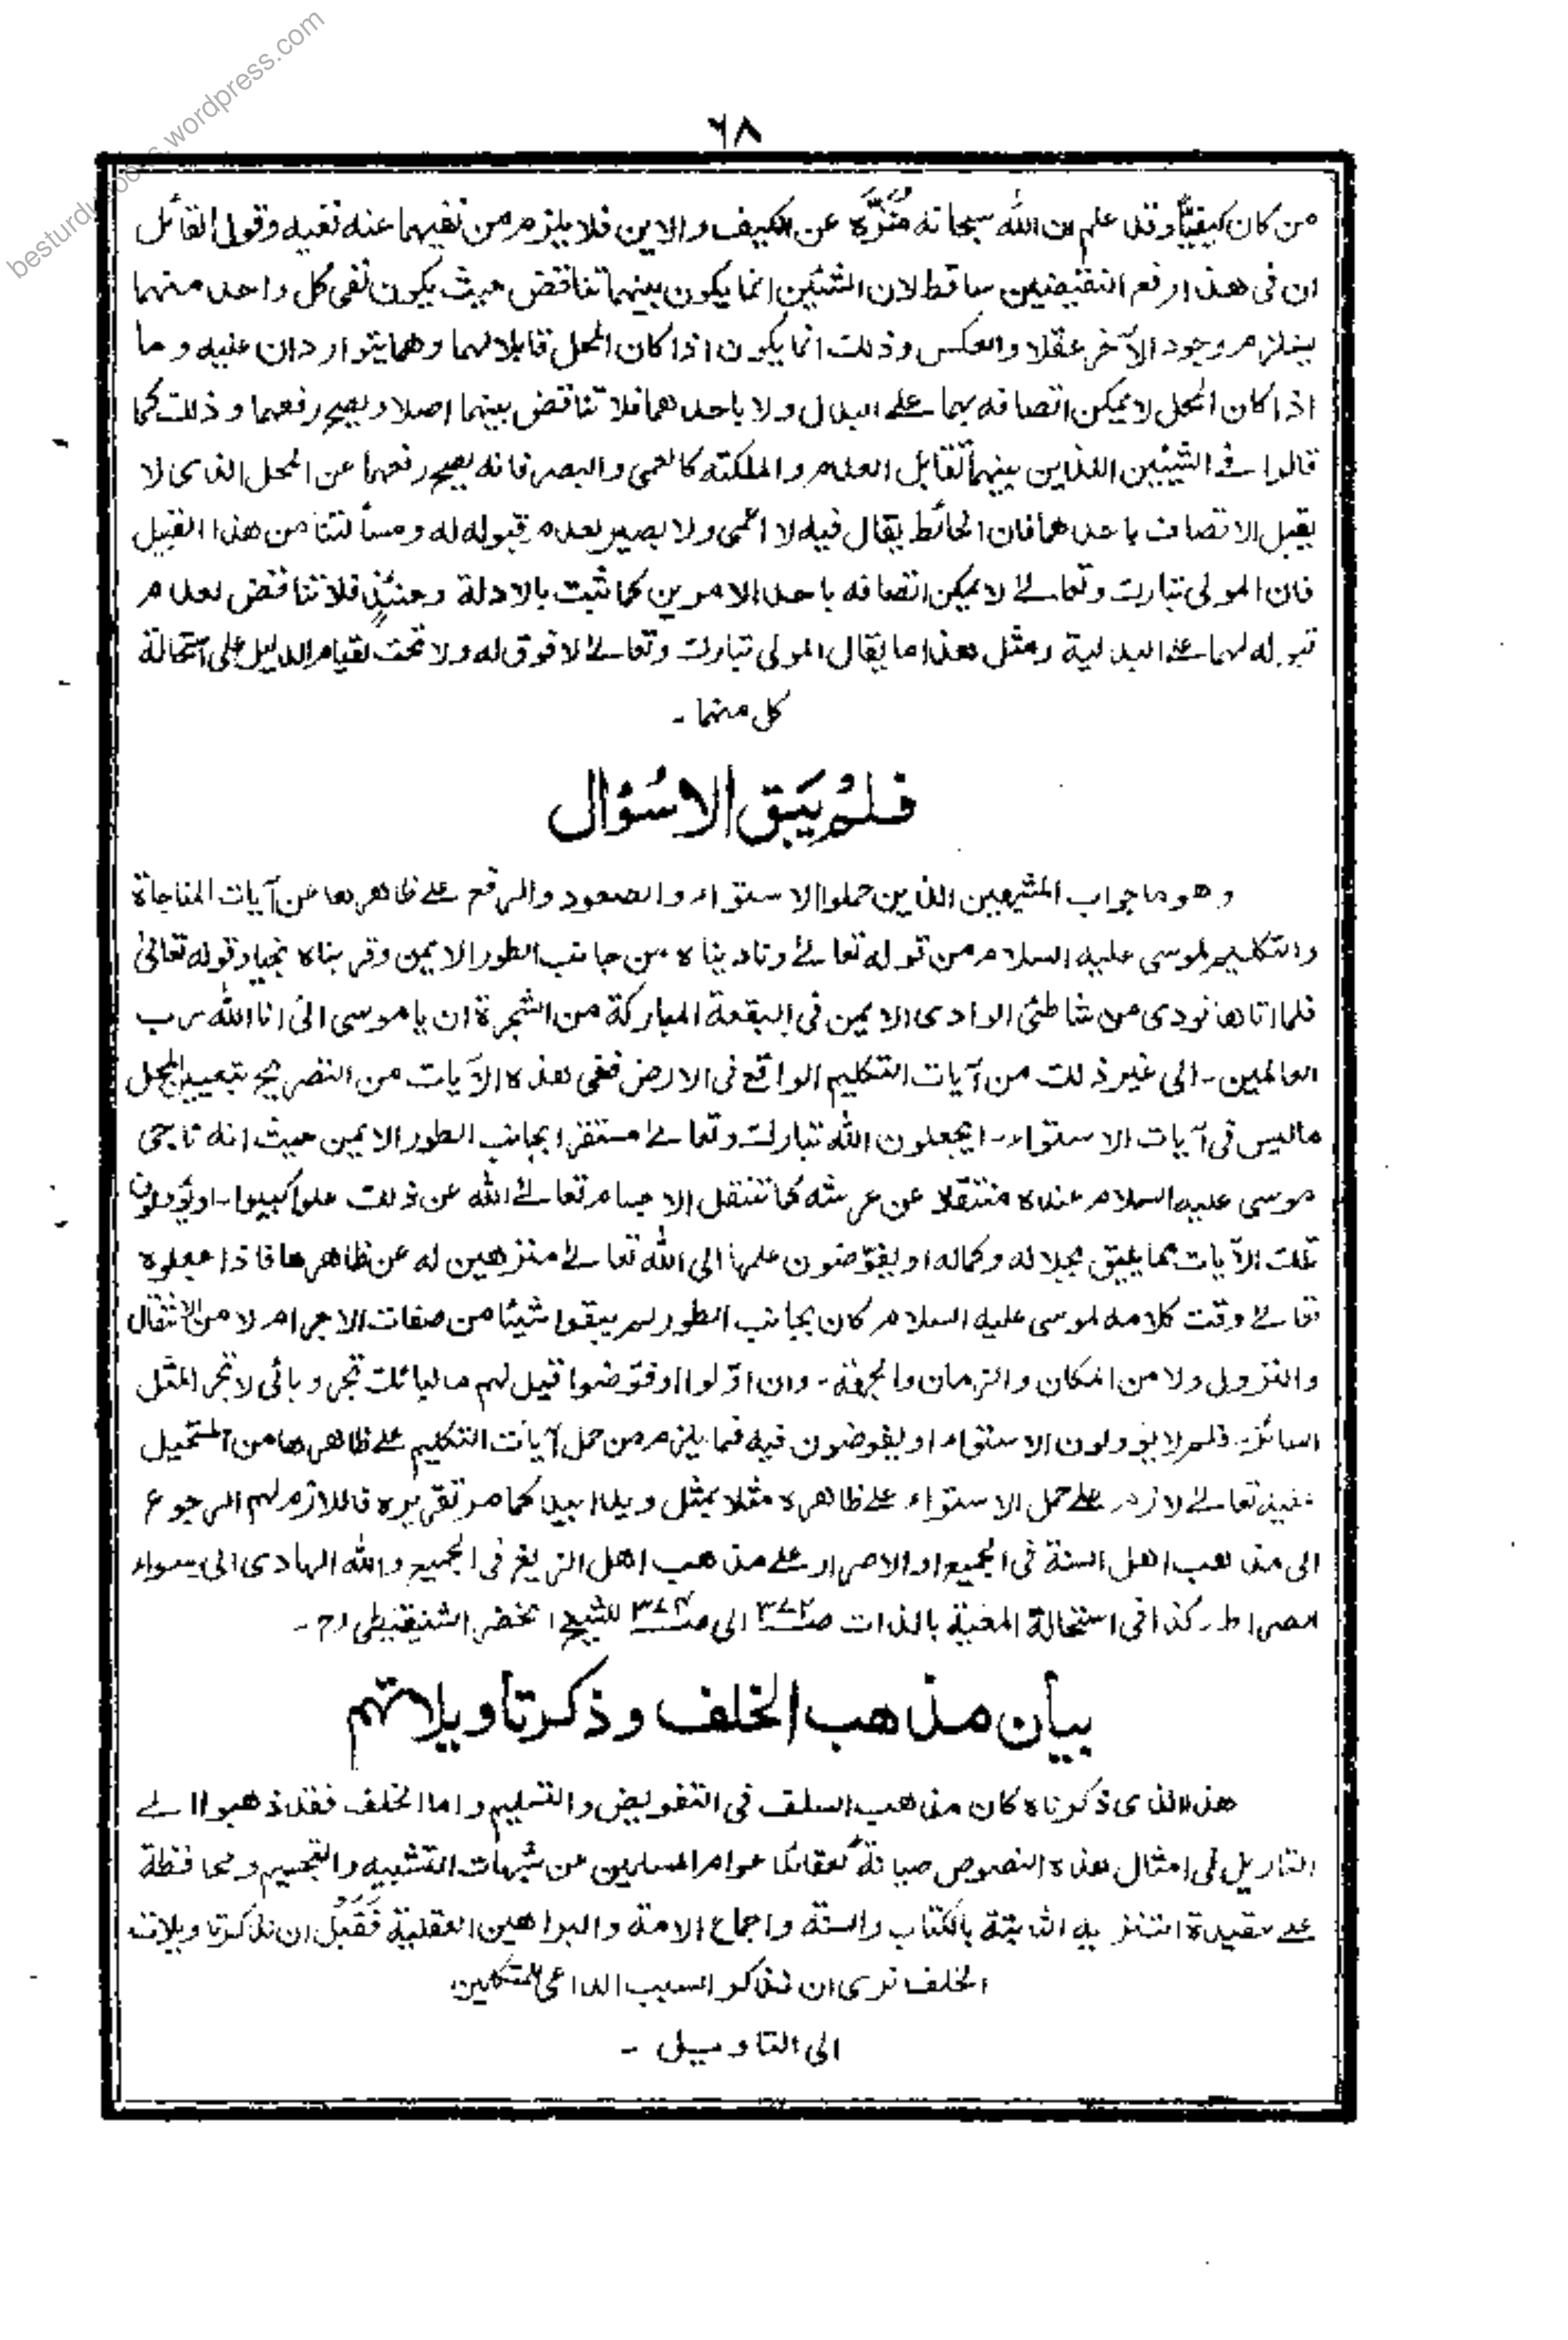 besturdubooks.wordpress.com
٦٨
من كان كيفيّاً وقد علم ان الله سبحانه مُنَزَّه عن الكيف والاين فلا يلزم من نفيهما عنه نفيه وقول القائل
ان في هذا رفع النقيضين ساقط لان الشئين انما يكون بينهما تناقض حيث يكون نفى كل واحد منهما
يستلزم وجود الآخر عقلا والعكس وذلك انما يكون اذا كان المحل قابلا لهما وهما يتواردان عليه وما
اذا كان المحل لا يمكن اتصافه بهما على البدل ولا باحدهما فلا تناقض بينهما اصلا ويصح رفعهما وذلك كما
قالوا في الشيئين اللذين بينهما تقابل العدم والملكته كالعمى والبصر فانه يصح رفعهما عن المحل الذى لا
يقبل الاتصاف باحدهما فان الحائط يقال فيه لا اعمى ولا بصير لعدم قبوله له ومسألتنا من هذا القبيل
فان المولى تبارك وتعالى لا يمكن اتصافه باحد الامرين كما ثبت بالادلة وحينئذٍ فلا تناقض لعدم
قبوله لهما على البدلية ومثل هذا ما يقال المولى تبارك وتعالى لا فوق له ولا تحت لقيام الدليل على استحالة
كل منهما۔
فَلَمْ يَبَق الا سُؤال
وهو ما جواب المشبهين الذين حملوا الاستواء والصعود والرفع على ظاهرها عن آيات المناجاة
والتكليم لموسى عليه السلام من قوله تعالى وناديناه من جانب الطور الايمن وقربناه نجيا وقوله تعالى
فلما اتاها نودى من شاطئ الوادى الايمن فى البقعة المباركة من الشجرة ان يا موسى انى انا الله رب
العالمين۔ الى غير ذلك من آيات التكليم الواقع فى الارض ففى هذه الآيات من التصريح بتعيين المحل
ما ليس فى آيات الاستواء۔ ايجعلون الله تبارك وتعالى مستقرا بجانب الطور الايمن حيث انه ناجى
موسى عليه السلام عنده منتقلا عن عرشه كما تنتقل الاجسام تعالى الله عن ذلك علوا كبيرا۔ او يؤولون
تلك الآيات بما يليق بجلاله وكماله او يفوّضون علمها الى الله تعالى منزهين له عن ظاهرها فاذا جعلوه
تعالى وقت كلامه لموسى عليه السلام كان بجانب الطور لم يبقوا شيئا من صفات الاجرام لا من الانتقال
والنزول ولا من المكان والزمان والجهة۔ وان اوّلوا او فوّضوا قيل لهم ما لبائك تجر وبائى لا تجر المثل
السائر۔ فلم لا يؤولون الاستواء او يفوضون فيه فما يلزم من حمل آيات التكليم على ظاهرها من المستحيل
عليه تعالى لازم على حمل الاستواء على ظاهره مثلا بمثل ويدا بيد كما مر تقريره فاللازم لهم الرجوع
الى مذهب اهل السنة فى الجميع او الاصرار على مذهب اهل الزيغ فى الجميع والله الهادى الى سواء
الصراط۔ كذا فى استحالة المعية بالذات للشيخ الخضر الشنقيطى رح۔
بيان مذهب الخلف وذكر تأويلاتهم
هذا الذى ذكرناه كان مذهب السلف فى التفويض والتسليم واما الخلف فقد ذهبوا الى
التاويل فى امثال هذه النصوص صيانةً لعقائد عوام المسلمين عن شبهات التشبيه والتجسيم ومحافظة
على عقيدة التنزيه الثابتة بالكتاب والسنة واجماع الامة والبراهين العقلية فَقَبْلَ ان نذكر تاويلات
الخلف نرى ان نذكر السبب الداعى للمتكلمين
الى التاويل۔